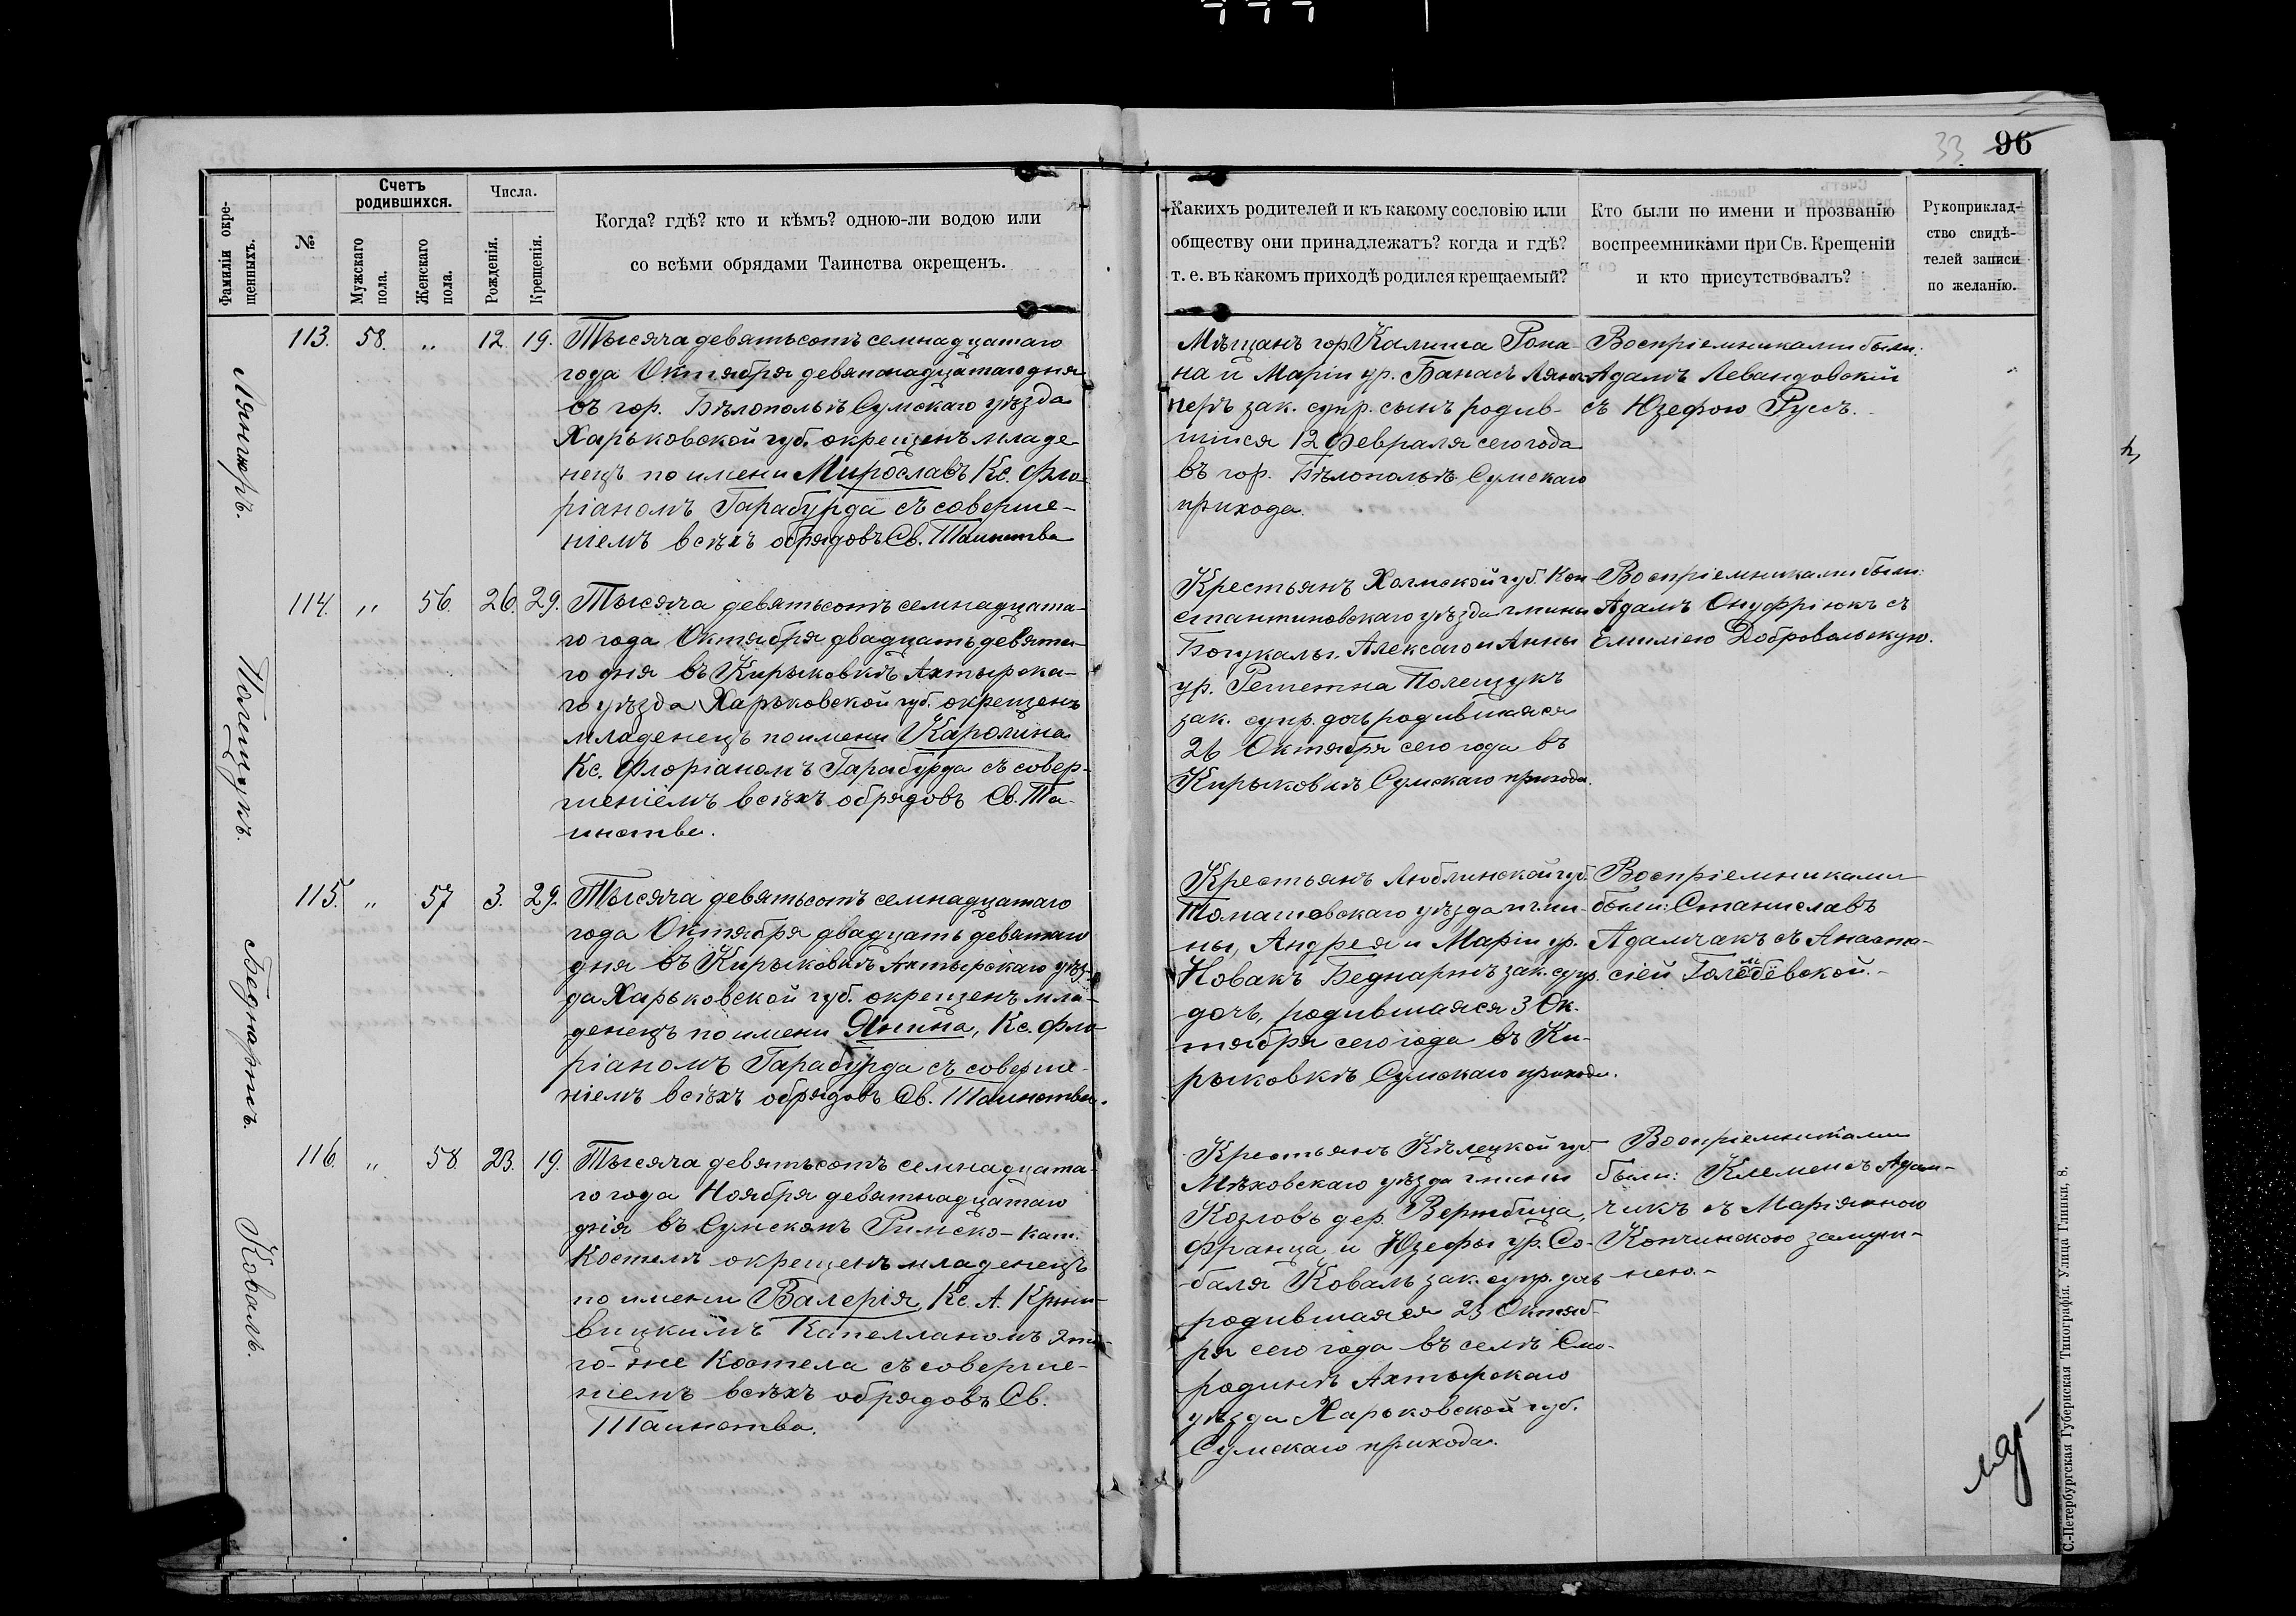 33 96
Фамиліи окре-
щенныхъ.
№
Счетъ
родившихся.
Мужскаго
пола.
Женскаго
пола.
Числа.
Рожденія.
Крещенія.
Когда? гдѣ? кто и кѣмъ? одною-ли водою или
со всѣми обрядами Таинства окрещенъ.
Какихъ родителей и къ какому сословію или
обществу они принадлежатъ? когда и гдѣ?
т. е. въ какомъ приходѣ родился крещаемый?
Кто были по имени и прозванію
воспреемниками при Св. Крещеніи
и кто присутствовалъ?
Рукоприклад-
ство свидѣ-
телей записи
по желанію.
113. 58. „ 12. 19.
Тысяча девятьсотъ семнадцатаго
года Октября девятнадцатаго дня
въ гор. Бѣлопольѣ Сумскаго уѣзда
Харьковской губ. окрещенъ младе-
нецъ по имени Мирославъ Кс. Фло-
ріаномъ Гарабурда съ соверше-
ніемъ всѣхъ обрядовъ Св. Таинства
Мѣщанъ гор. Калиша Рома-
на и Маріи ур. Банасъ Лянг-
неръ зак. супр. сынъ родив-
шійся 12 февраля сего года
въ гор. Бѣлопольѣ Сумскаго
прихода.
Воспріемниками были:
Адамъ Левандовскій
съ Юзефою Руссъ.
114. „ 56. 26. 29.
Полещукъ.
Тысяча девятьсотъ семнадцата-
го года Октября двадцать девята-
го дня въ Кирыковкѣ Ахтырска-
го уѣзда Харьковской губ. окрещенъ
младенецъ по имени Каролина
Кс. Флоріаномъ Гарабурда съ совер-
шеніемъ всѣхъ обрядовъ Св. Та-
инства.
Крестьянъ Холмской губ. Кон-
стантиновскаго уѣзда гмины
Богукалы, Алексаго и Анны
ур. Полещукъ
зак. супр. дочь родившаяся
26 Октября сего года въ
Кирыковкѣ Сумскаго прихода.
Воспріемниками были:
Адамъ Онуфріюкъ съ
Емиліею Добровольскую.
115. „ 57 3. 29.
Беднаржъ.
Тысяча девятьсотъ семнадцатаго
года Октября двадцать девятаго
дня въ Кирыковкѣ Ахтырскаго уѣз-
да Харьковской губ. окрещенъ мла-
денецъ по имени Янина, Кс. Фло-
ріаномъ Гарабурда съ соверше-
ніемъ всѣхъ обрядовъ Св. Таинства.
Крестьянъ Люблинской губ.
Томашовскаго уѣзда гми-
ны, Андрея и Маріи ур.
Новакъ Беднаржъ зак. супр.
дочь, родившаяся 3 Ок-
тября сего года въ Ки-
рыковкѣ Сумскаго прихода.
Воспріемниками
были: Станиславъ
Адамчакъ съ Анаста-
сіей
116. „ 58 23. 19.
Коваль.
Тысяча девятьсотъ семнадцата-
го года Ноября девятнадцатаго
дня въ Сумскомъ Римско-Кат.
Костелѣ окрещенъ младенецъ
по имени Валерія, Кс. А. Крыни-
вицкимъ Капелланомъ это-
го-же Костела съ соверше-
ніемъ всѣхъ обрядовъ Св.
Таинства.
Крестьянъ Кѣлецкой губ.
Мѣховскаго уѣзда гмины
Козловъ дер. Вержбица,
Франца и Юзефы ур. Со-
баля Коваль зак. супр. дочь
родившаяся 23 Октяб-
ря сего года въ селѣ Смо-
родинѣ Ахтырскаго
уѣзда Харьковской губ.
Сумскаго прихода.
Воспріемниками
были: Клеменсъ Адам-
чикъ съ Маріянною
Копчинскою замуж-
нею.-
С.-Петербургская Губернская Типографія. Улица Глинки, 8.